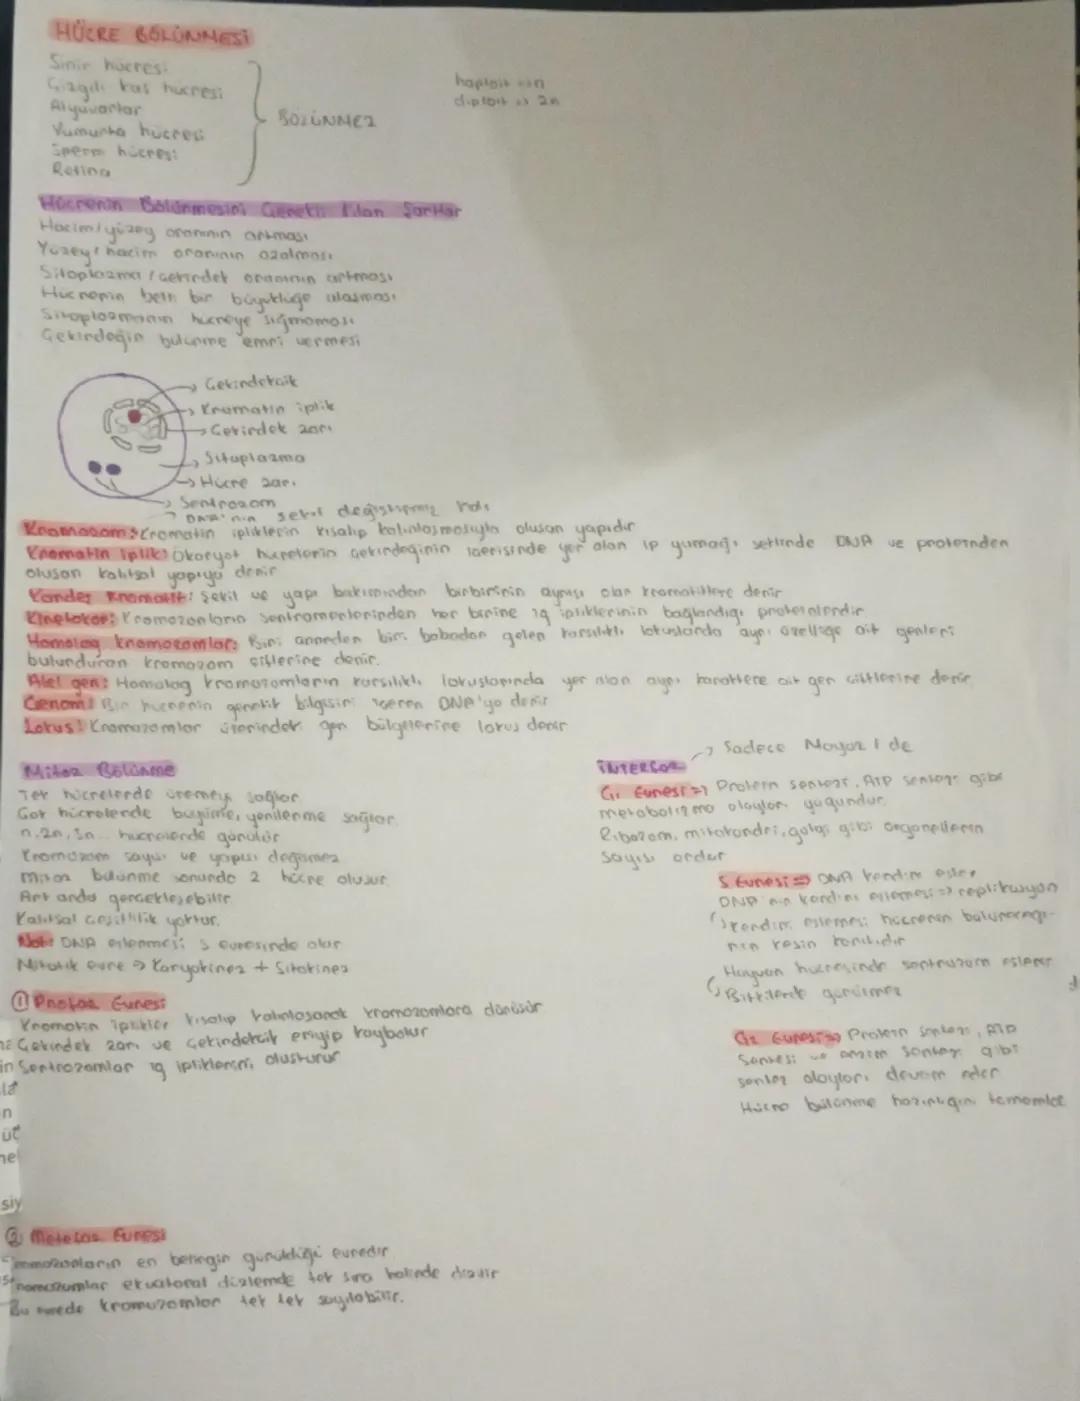 HÜCRE BÖLÜNMESİ
Sinir hücresi
Çizgili kas hücresi
Alyuvarlar
Yumurta hücresi
Sperm hücresi
Retina
BÖLÜNMEZ
haploit => n
diploit => 2n
Hücrenin Bölünmesini Gerekli Kılan Şartlar
Hacim/yüzey oranının artması
Yüzey/hacim oranının azalması
Sitoplazma/çekirdek oranının artması
Hücrenin belli bir büyüklüğe ulaşması
Sitoplazmanın hücreye sığmaması
Çekirdeğin bölünme emri vermesi
Çekirdekçik
Kromatin iplik
Çekirdek zarı
Sitoplazma
Hücre zarı
Sentrozom
DNA'nın şekil değiştirmiş hali
Kromozom: Kromatin ipliklerin kısalıp kalınlaşmasıyla oluşan yapıdır
Kromatin iplik: Ökaryot hücrelerin çekirdeğinin içerisinde yer alan ip yumağı şeklinde DNA ve proteinden
oluşan kalıtsal yapıya denir
Kardeş Kromatit: Şekil ve yapı bakımından birbirinin aynısı olan kromatitlere denir
Kinetokor: Kromozonların sentromerlerinden her birine iğ ipliklerinin bağlandığı proteinlerdir
Homolog kromozomlar: Biri anneden biri babadan gelen karşılıklı lokuslarda aynı özelliğe ait genleri
bulunduran kromozom çiftlerine denir.
Alel gen: Homolog kromozomların karşılıklı lokuslarında yer alan aynı karaktere ait gen çiftlerine denir
Genom: Bir hücrenin genetik bilgisini içeren DNA'ya denir
Lokus: Kromozomlar üzerindeki gen bölgelerine lokus denir
Mitoz Bölünme
Tek hücrelerde üremeyi sağlar
Çok hücrelerde büyüme, yenilenme sağlar
n, 2n, 3n... hücrelerde görülür
Kromozom sayısı ve yapısı değişmez
Mitoz bölünme sonunda 2 hücre oluşur
Art arda gerçekleşebilir
Kalıtsal çeşitlilik yoktur.
Not: DNA eşlenmesi S evresinde olur
Mitotik evre => Karyokinez + Sitokinez
① Profaz Evresi
Kromatin iplikler kısalıp kalınlaşarak kromozomlara dönüşür
Çekirdek zarı ve çekirdekçik eriyip kaybolur
Sentrozomlar iğ ipliklerini oluşturur
② Metafaz Evresi
Kromozonların en belirgin görüldüğü evredir
Kromozomlar ekvatoral düzlemde tek sıra halinde dizilir
Bu evrede kromozomlar tek tek sayılabilir.
İNTERFAZ
Sadece Mayoz I de
G₁ Evresi => Protein sentezi, ATP sentezi gibi
metabolizma olayları yoğundur
Ribozom, mitokondri, golgi gibi organellerin
sayısı artar
S Evresi => DNA kendini eşler
DNA'nın kendini eşlemesi => replikasyon
kendini eşlemesi hücrenin bölüneceği-
nin kesin kanıtıdır
Hayvan hücresinde sentrozom eşlenir
Bitkilerde görülmez
G₂ Evresi => Protein sentezi, ATP
Sentezi ve enzim sentezi gibi
sentez olayları devam eder
Hücre bölünme hazırlığını tamamlar